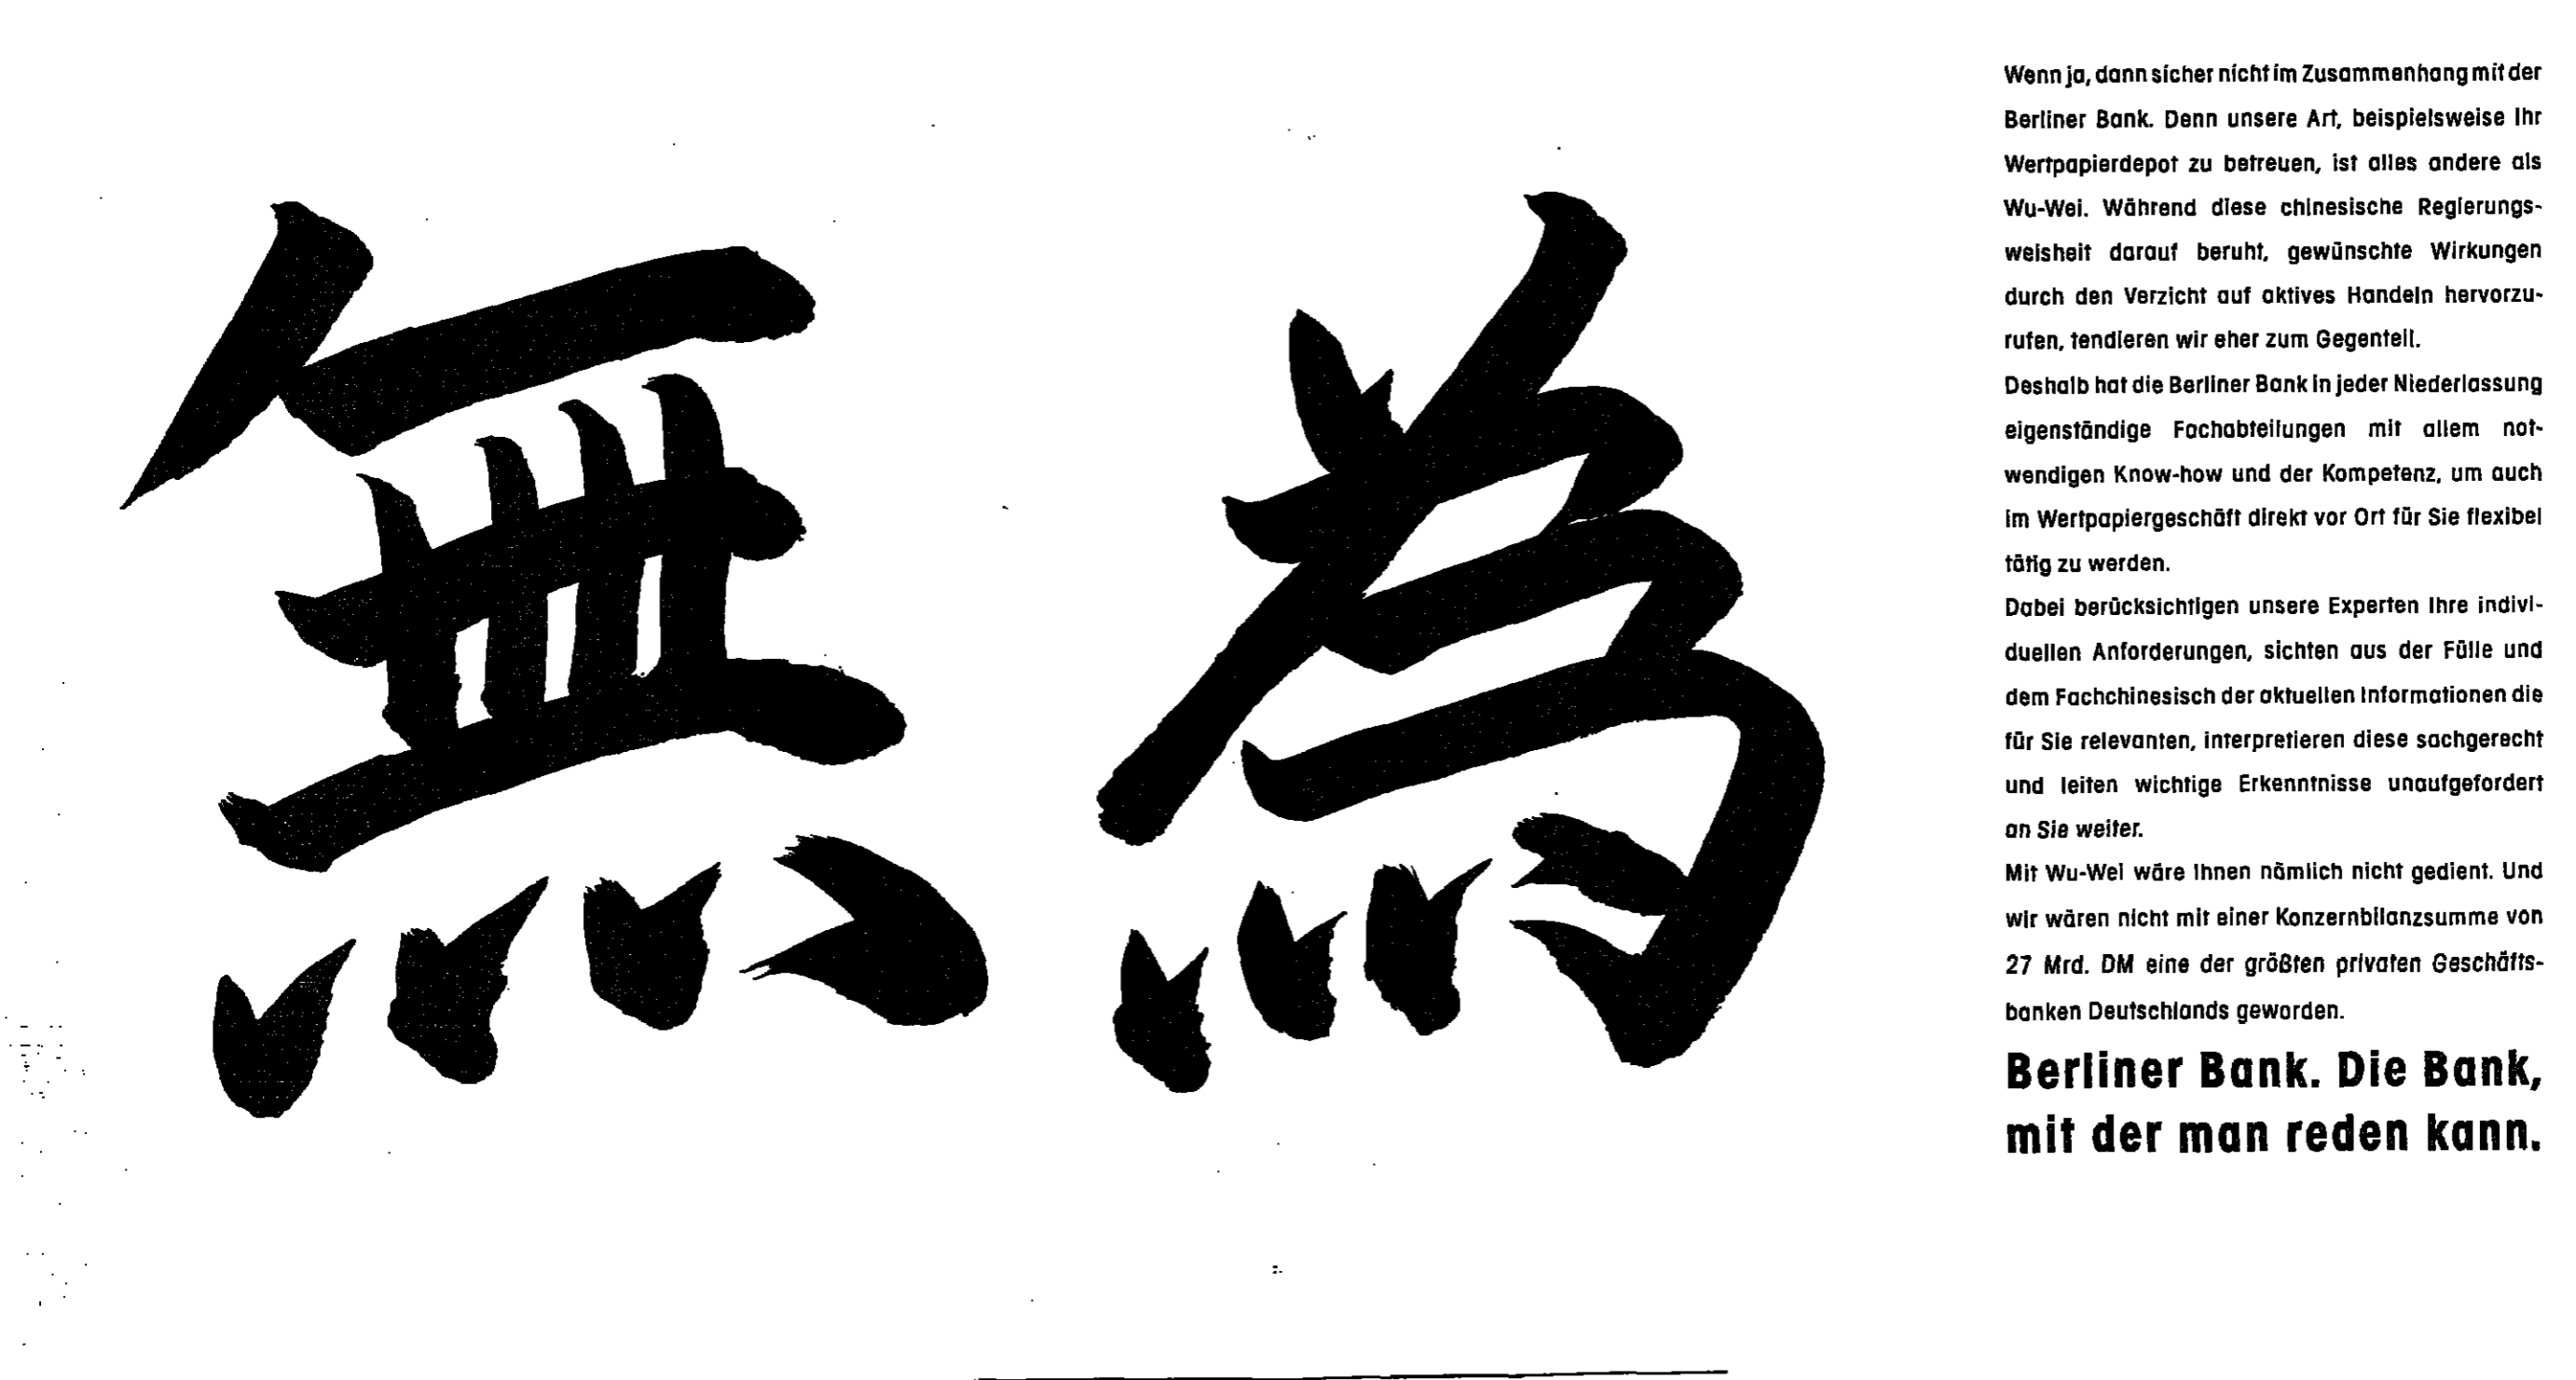 無為
Wenn ja, dann sicher nicht im Zusammenhang mit der
Berliner Bank. Denn unsere Art, beispielsweise Ihr
Wertpapierdepot zu betreuen, ist alles andere als
Wu-Wei. Während diese chinesische Regierungs-
weisheit darauf beruht, gewünschte Wirkungen
durch den Verzicht auf aktives Handeln hervorzu-
rufen, tendieren wir eher zum Gegenteil.
Deshalb hat die Berliner Bank in jeder Niederlassung
eigenständige Fachabteilungen mit allem not-
wendigen Know-how und der Kompetenz, um auch
im Wertpapiergeschäft direkt vor Ort für Sie flexibel
tätig zu werden.
Dabei berücksichtigen unsere Experten Ihre indivi-
duellen Anforderungen, sichten aus der Fülle und
dem Fachchinesisch der aktuellen Informationen die
für Sie relevanten, interpretieren diese sachgerecht
und leiten wichtige Erkenntnisse unaufgefordert
an Sie weiter.
Mit Wu-Wei wäre Ihnen nämlich nicht gedient. Und
wir wären nicht mit einer Konzernbilanzsumme von
27 Mrd. DM eine der größten privaten Geschäfts-
banken Deutschlands geworden.
Berliner Bank. Die Bank,
mit der man reden kann.